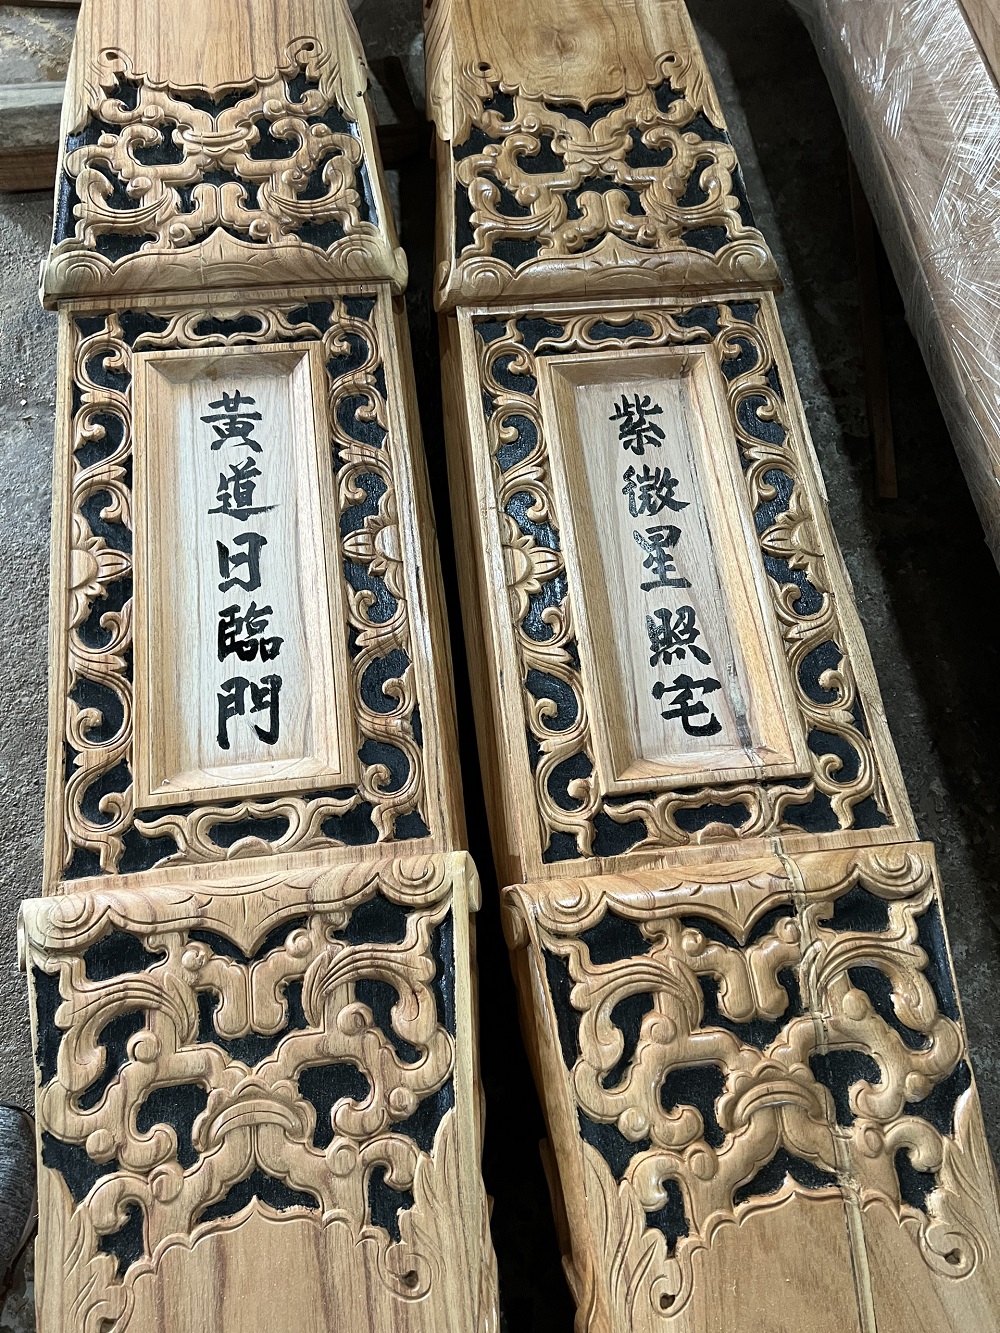 紫微星照宅
黃道日臨門